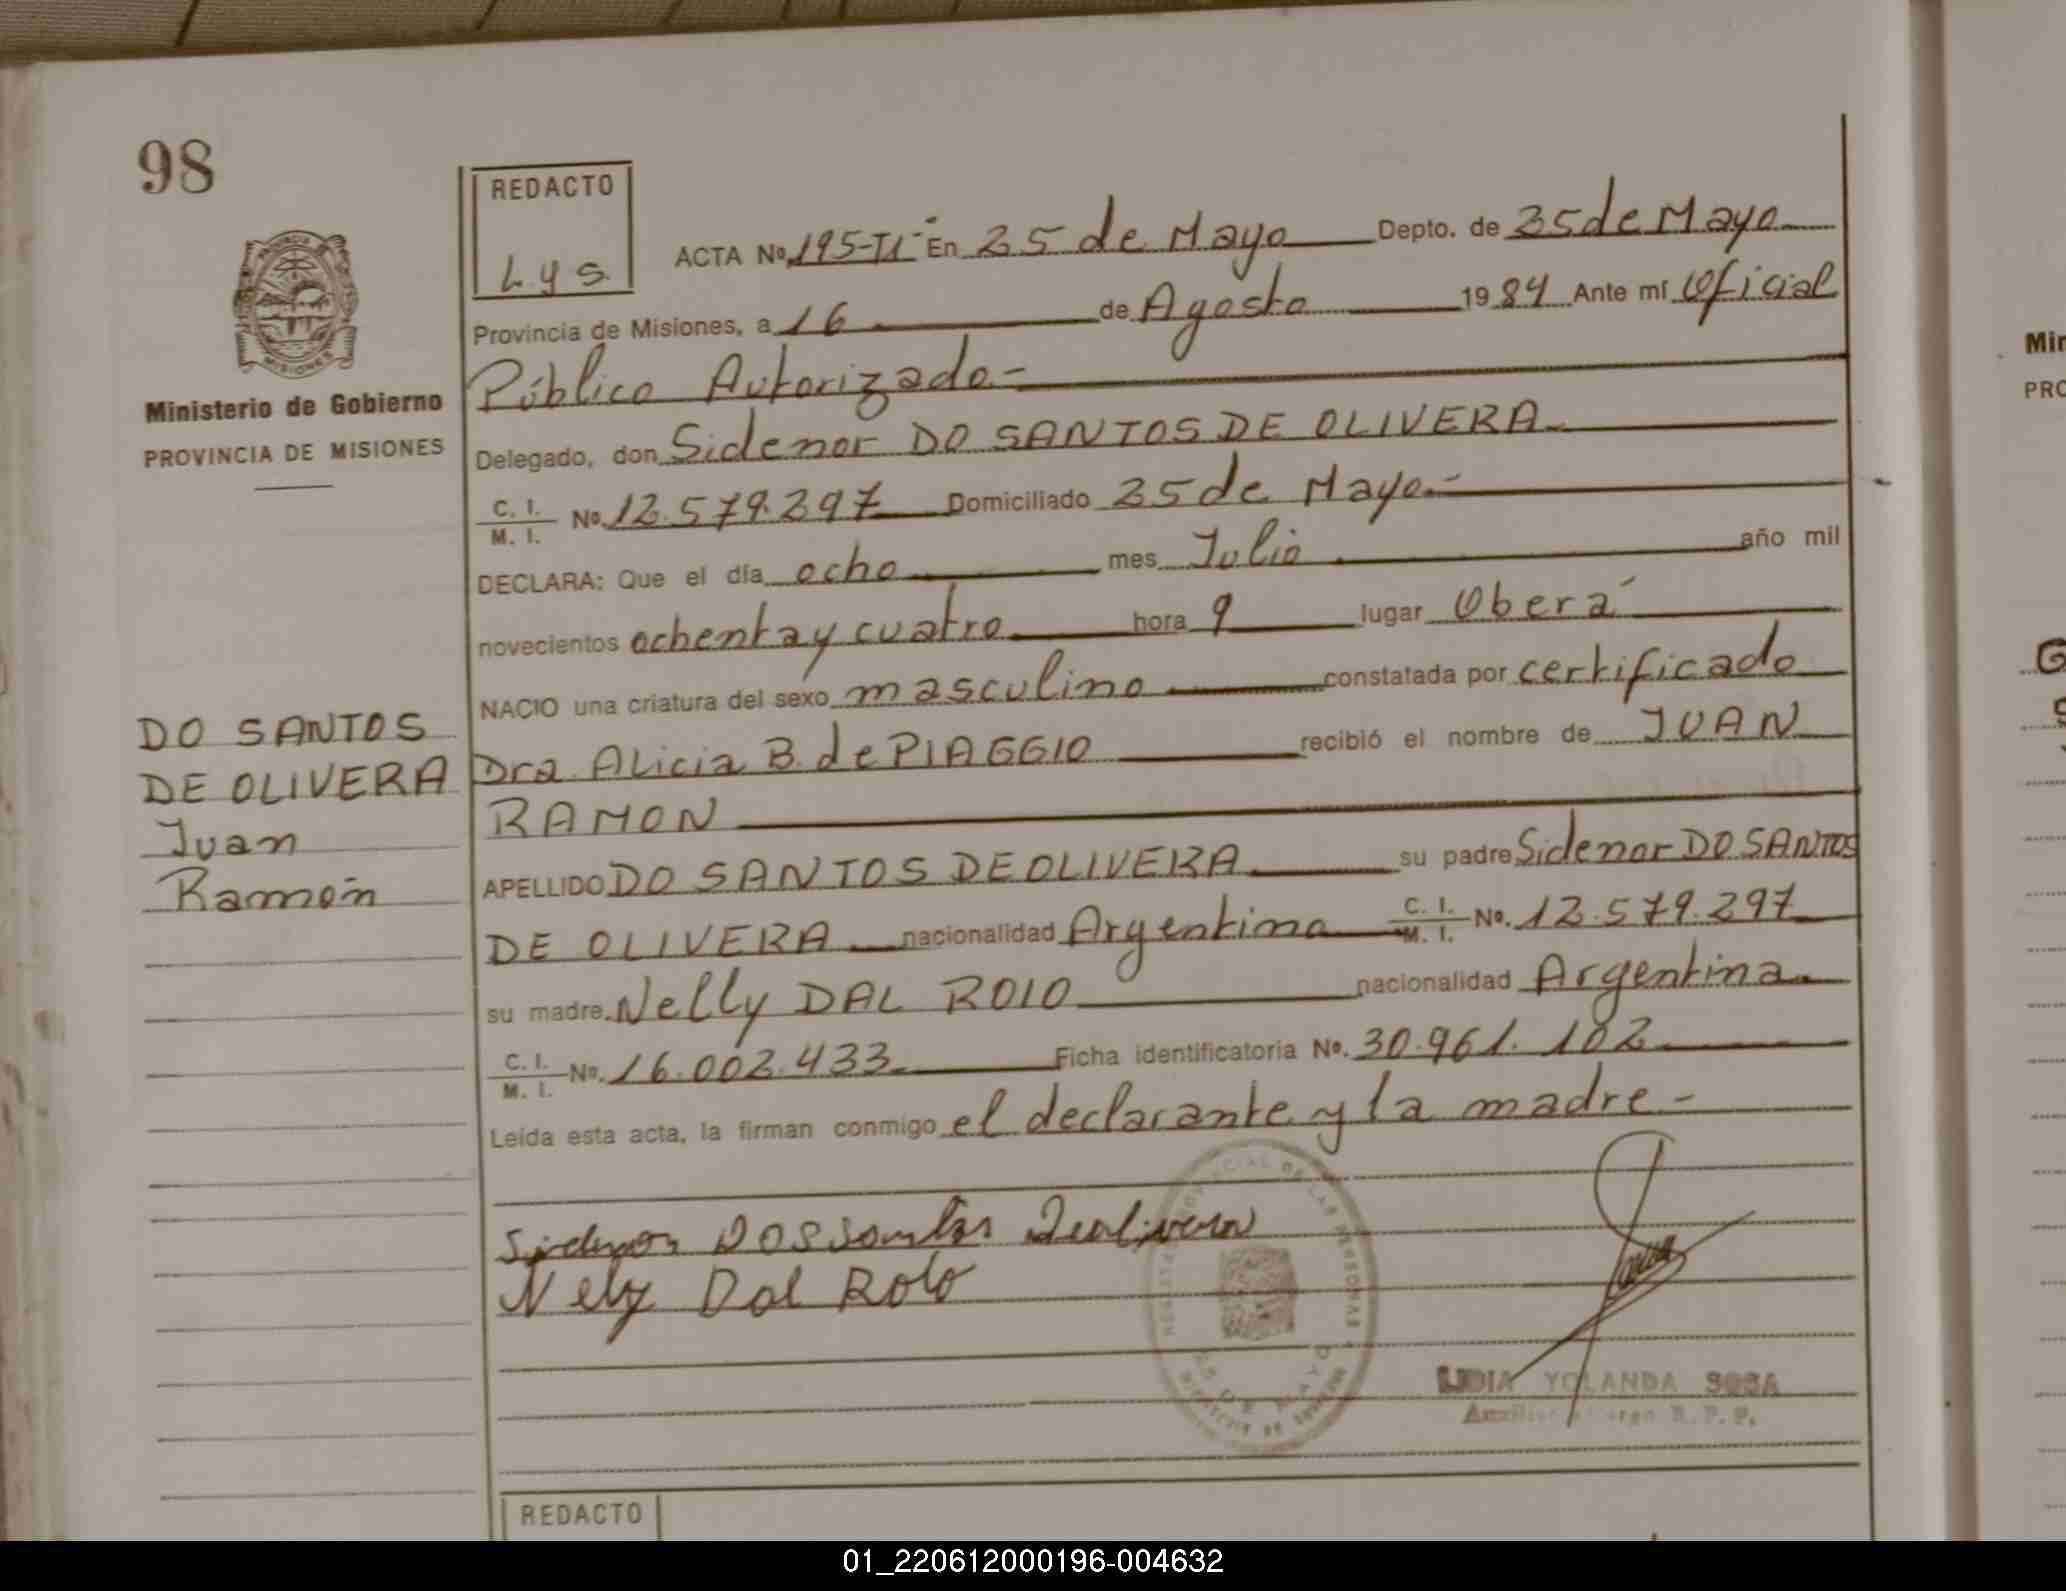 98
REDACTO
L.y S.
ACTA No. 195-TI- En 25 de Mayo Depto. de 25 de Mayo
Provincia de Misiones, a 16 de Agosto 1984 Ante mí Oficial
Público Autorizado.-
Ministerio de Gobierno
PROVINCIA DE MISIONES
Delegado, don Sidenor DO SANTOS DE OLIVERA
C. I.
M. I. No. 12.579.297 Domiciliado 25 de Mayo.-
DECLARA: Que el día ocho mes Julio año mil
novecientos ochenta y cuatro hora 9 lugar Oberá
NACIO una criatura del sexo masculino constatada por certificado
Dra. Alicia B. de PIAGGIO recibió el nombre de JUAN
RAMON
DO SANTOS
DE OLIVERA
Juan
Ramón
APELLIDO DO SANTOS DE OLIVERA su padre Sidenor DO SANTOS
DE OLIVERA nacionalidad Argentina C. I. M. I. No. 12.579.297
su madre Nelly DAL ROIO nacionalidad Argentina
C. I.
M. I. No. 16.002.433 Ficha identificatoria No. 30.961.102
Leída esta acta, la firman conmigo el declarante y la madre -
Sidenor Dos Santos Deolivera
Nely Dal Rolo
25 DE MAYO
LIDIA YOLANDA SOSA
REDACTO
Min
PRO
01_220612000196-004632